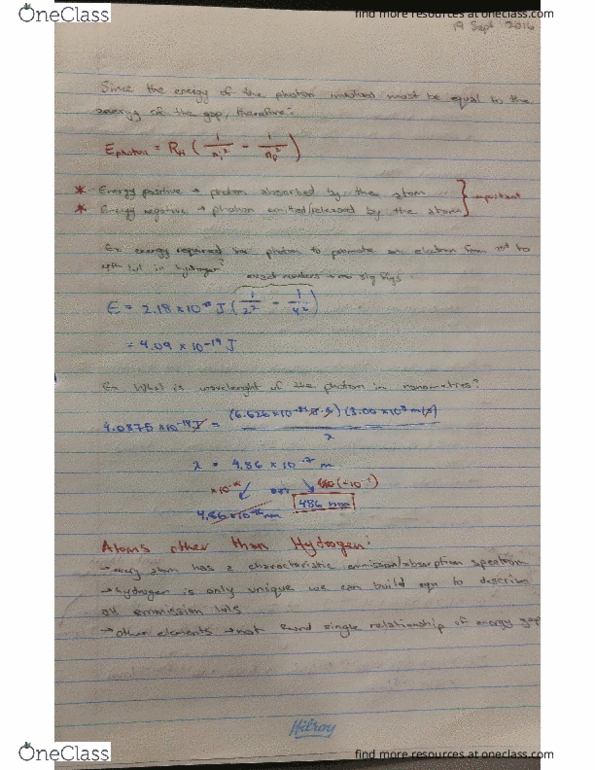 OneClass
find more resources at oneclass.com
19 Sept 2016
Since the energy of the photon must be equal to the
energy of the gap, therefore:
Ephoton = RH ( 1/ni² - 1/nf² )
* Energy positive → photon absorbed by the atom
* Energy negative → photon emitted/released by the atom
important
Ex. energy required for photon to promote an electron from 2nd to
4th lvl in hydrogen
exact numbers → no sig figs
E = 2.18 × 10⁻¹⁸ J ( 1/2² - 1/4² )
= 4.09 × 10⁻¹⁹ J
Ex. What is wavelenght of the photon in nanometres?
4.0875 × 10⁻¹⁹ J = (6.626 × 10⁻³⁴ J·s) (3.00 × 10⁸ m/s) / λ
λ = 4.86 × 10⁻⁷ m
486 nm
Atoms other than Hydrogen:
→ every atom has a characteristic emission/absorption spectrum
→ hydrogen is only unique we can build eqn to describe
all emmission lvls
→ other elements → not found single relationship of energy gap
Hilroy
OneClass
find more resources at oneclass.com